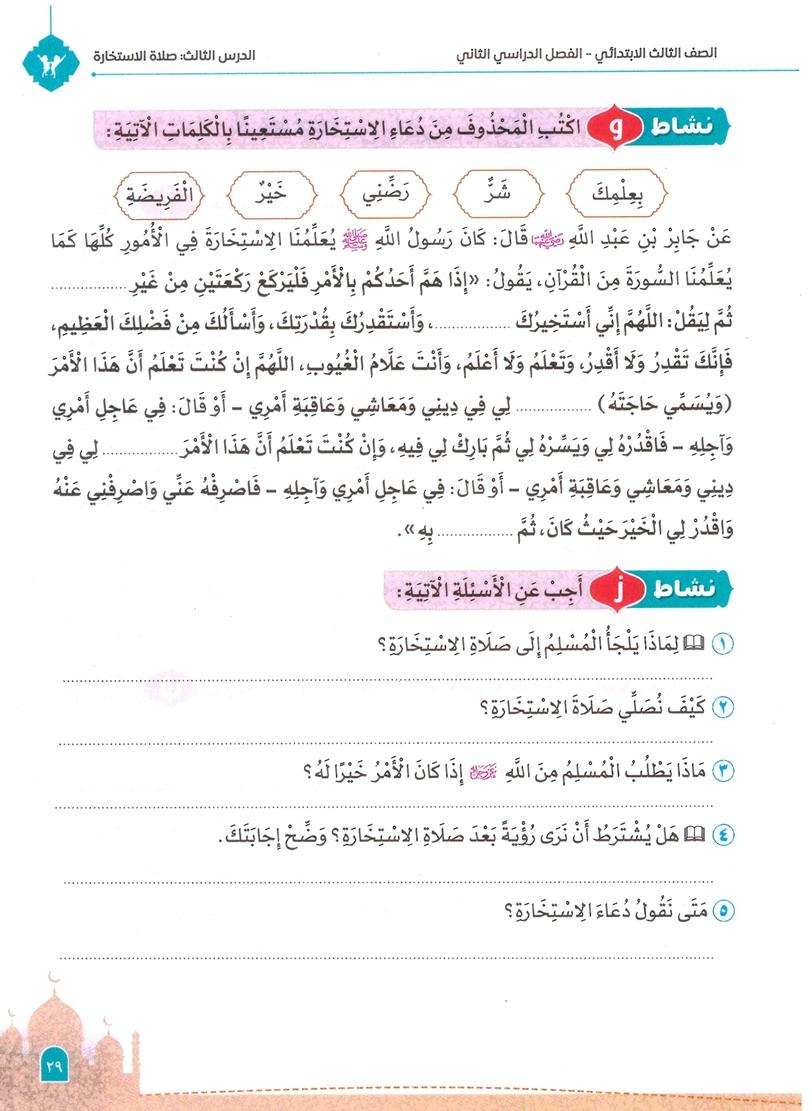 الصف الثالث الابتدائي - الفصل الدراسي الثاني
الدرس الثالث: صلاة الاستخارة
نشاط و اكْتُبِ الْمَحْذُوفَ مِنَ دُعَاءِ الِاسْتِخَارَةِ مُسْتَعِينًا بِالْكَلِمَاتِ الْآتِيَةِ:
بِعِلْمِكَ شَرٌّ رَضِّنِي خَيْرٌ الْفَرِيضَةِ
عَنْ جَابِرْ بْنِ عَبْدِ اللَّهِ رضي الله عنهما قَالَ: كَانَ رَسُولُ اللَّهِ ﷺ يُعَلِّمُنَا الِاسْتِخَارَةَ فِي الْأُمُورِ كُلِّهَا كَمَا
يُعَلِّمُنَا السُّورَةَ مِنَ الْقُرْآنِ، يَقُولُ: «إِذَا هَمَّ أَحَدُكُمْ بِالْأَمْرِ فَلْيَرْكَعْ رَكْعَتَيْنِ مِنْ غَيْرِ ..................
ثُمَّ لِيَقُلْ: اللَّهُمَّ إِنِّي أَسْتَخِيرُكَ ..................، وَأَسْتَقْدِرُكَ بِقُدْرَتِكَ، وَأَسْأَلُكَ مِنْ فَضْلِكَ الْعَظِيمِ،
فَإِنَّكَ تَقْدِرُ وَلَا أَقْدِرُ، وَتَعْلَمُ وَلَا أَعْلَمُ، وَأَنْتَ عَلَّامُ الْغُيُوبِ، اللَّهُمَّ إِنْ كُنْتَ تَعْلَمُ أَنَّ هَذَا الْأَمْرَ
(وَيُسَمِّي حَاجَتَهُ) .................. لِي فِي دِينِي وَمَعَاشِي وَعَاقِبَةِ أَمْرِي – أَوْ قَالَ: فِي عَاجِلِ أَمْرِي
وَآجِلِهِ – فَاقْدُرْهُ لِي وَيَسِّرْهُ لِي ثُمَّ بَارِكْ لِي فِيهِ، وَإِنْ كُنْتَ تَعْلَمُ أَنَّ هَذَا الْأَمْرَ .................. لِي فِي
دِينِي وَمَعَاشِي وَعَاقِبَةِ أَمْرِي – أَوْ قَالَ: فِي عَاجِلِ أَمْرِي وَآجِلِهِ – فَاصْرِفْهُ عَنِّي وَاصْرِفْنِي عَنْهُ
وَاقْدُرْ لِي الْخَيْرَ حَيْثُ كَانَ، ثُمَّ .................. بِهِ».
نشاط ز أَجِبْ عَنِ الْأَسْئِلَةِ الْآتِيَةِ:
١ لِمَاذَا يَلْجَأُ الْمُسْلِمُ إِلَى صَلَاةِ الِاسْتِخَارَةِ؟
٢ كَيْفَ نُصَلِّي صَلَاةَ الِاسْتِخَارَةِ؟
٣ مَاذَا يَطْلُبُ الْمُسْلِمُ مِنَ اللَّهِ عز وجل إِذَا كَانَ الْأَمْرُ خَيْرًا لَهُ؟
٤ هَلْ يُشْتَرَطُ أَنْ نَرَى رُؤْيَةً بَعْدَ صَلَاةِ الِاسْتِخَارَةِ؟ وَضِّحْ إِجَابَتَكَ.
٥ مَتَى نَقُولُ دُعَاءَ الِاسْتِخَارَةِ؟
٢٩